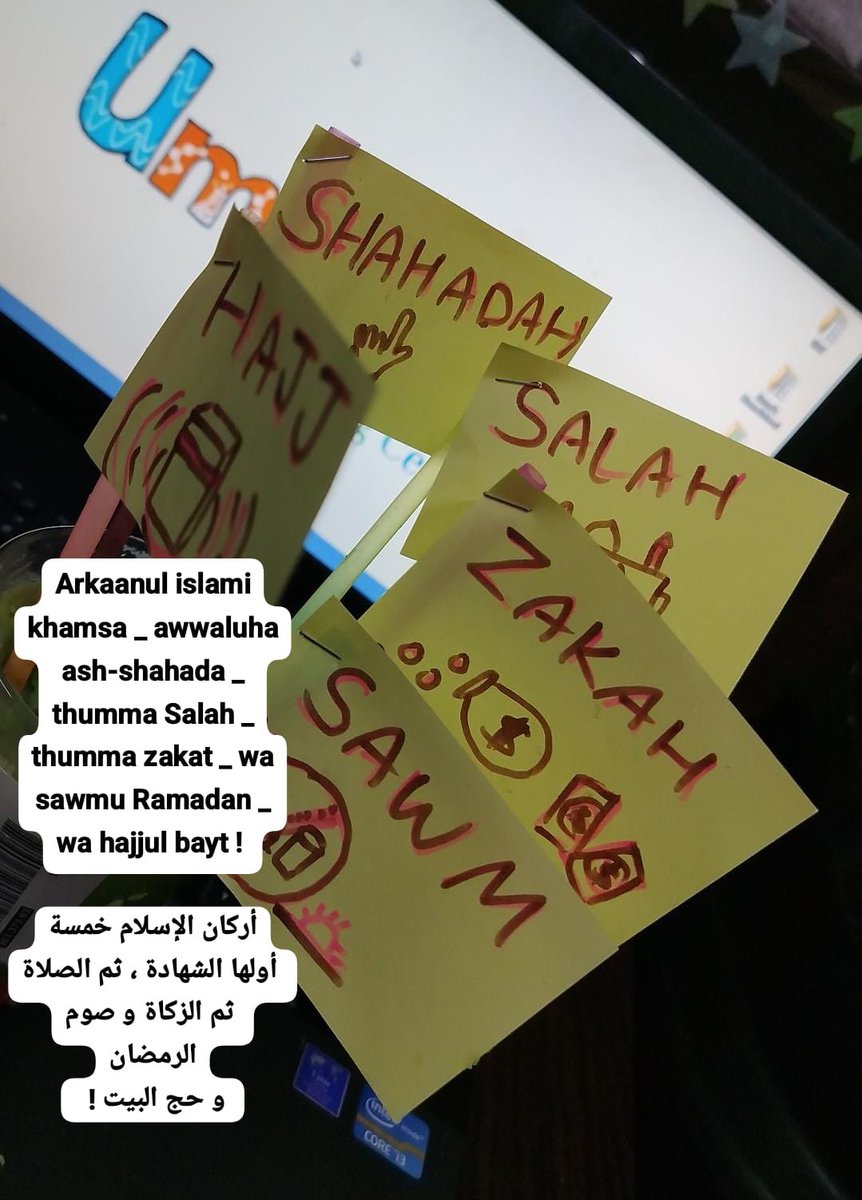 Um
SHAHADAH
HAJJ
SALAH
ZAKAH
$
$
$
SAWM
Arkaanul islami
khamsa _ awwaluha
ash-shahada _
thumma Salah _
thumma zakat _ wa
sawmu Ramadan _
wa hajjul bayt !
أركان الإسلام خمسة
أولها الشهادة ، ثم الصلاة
ثم الزكاة و صوم
الرمضان
و حج البيت !
intel
CORE i3